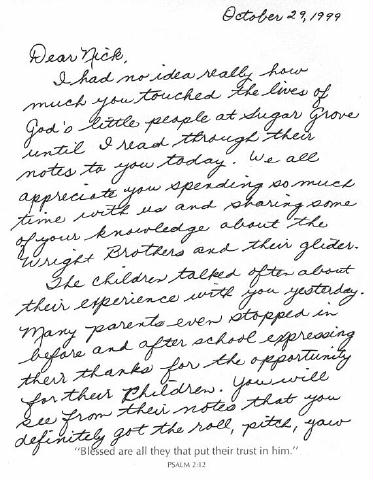 October 29, 1999
Dear Nick,
I had no idea really how
much you touched the lives of
God's little people at Sugar Grove
until I read through their
notes to you today. We all
appreciate you spending so much
time with us and sharing some
of your knowledge about the
Wright Brothers and their glider.
The children talked often about
their experience with you yesterday.
Many parents even stopped in
before and after school expressing
their thanks for the opportunity
for their children. You will
see from their notes that you
definitely got the roll, pitch, yaw
"Blessed are all they that put their trust in him."
PSALM 2:12